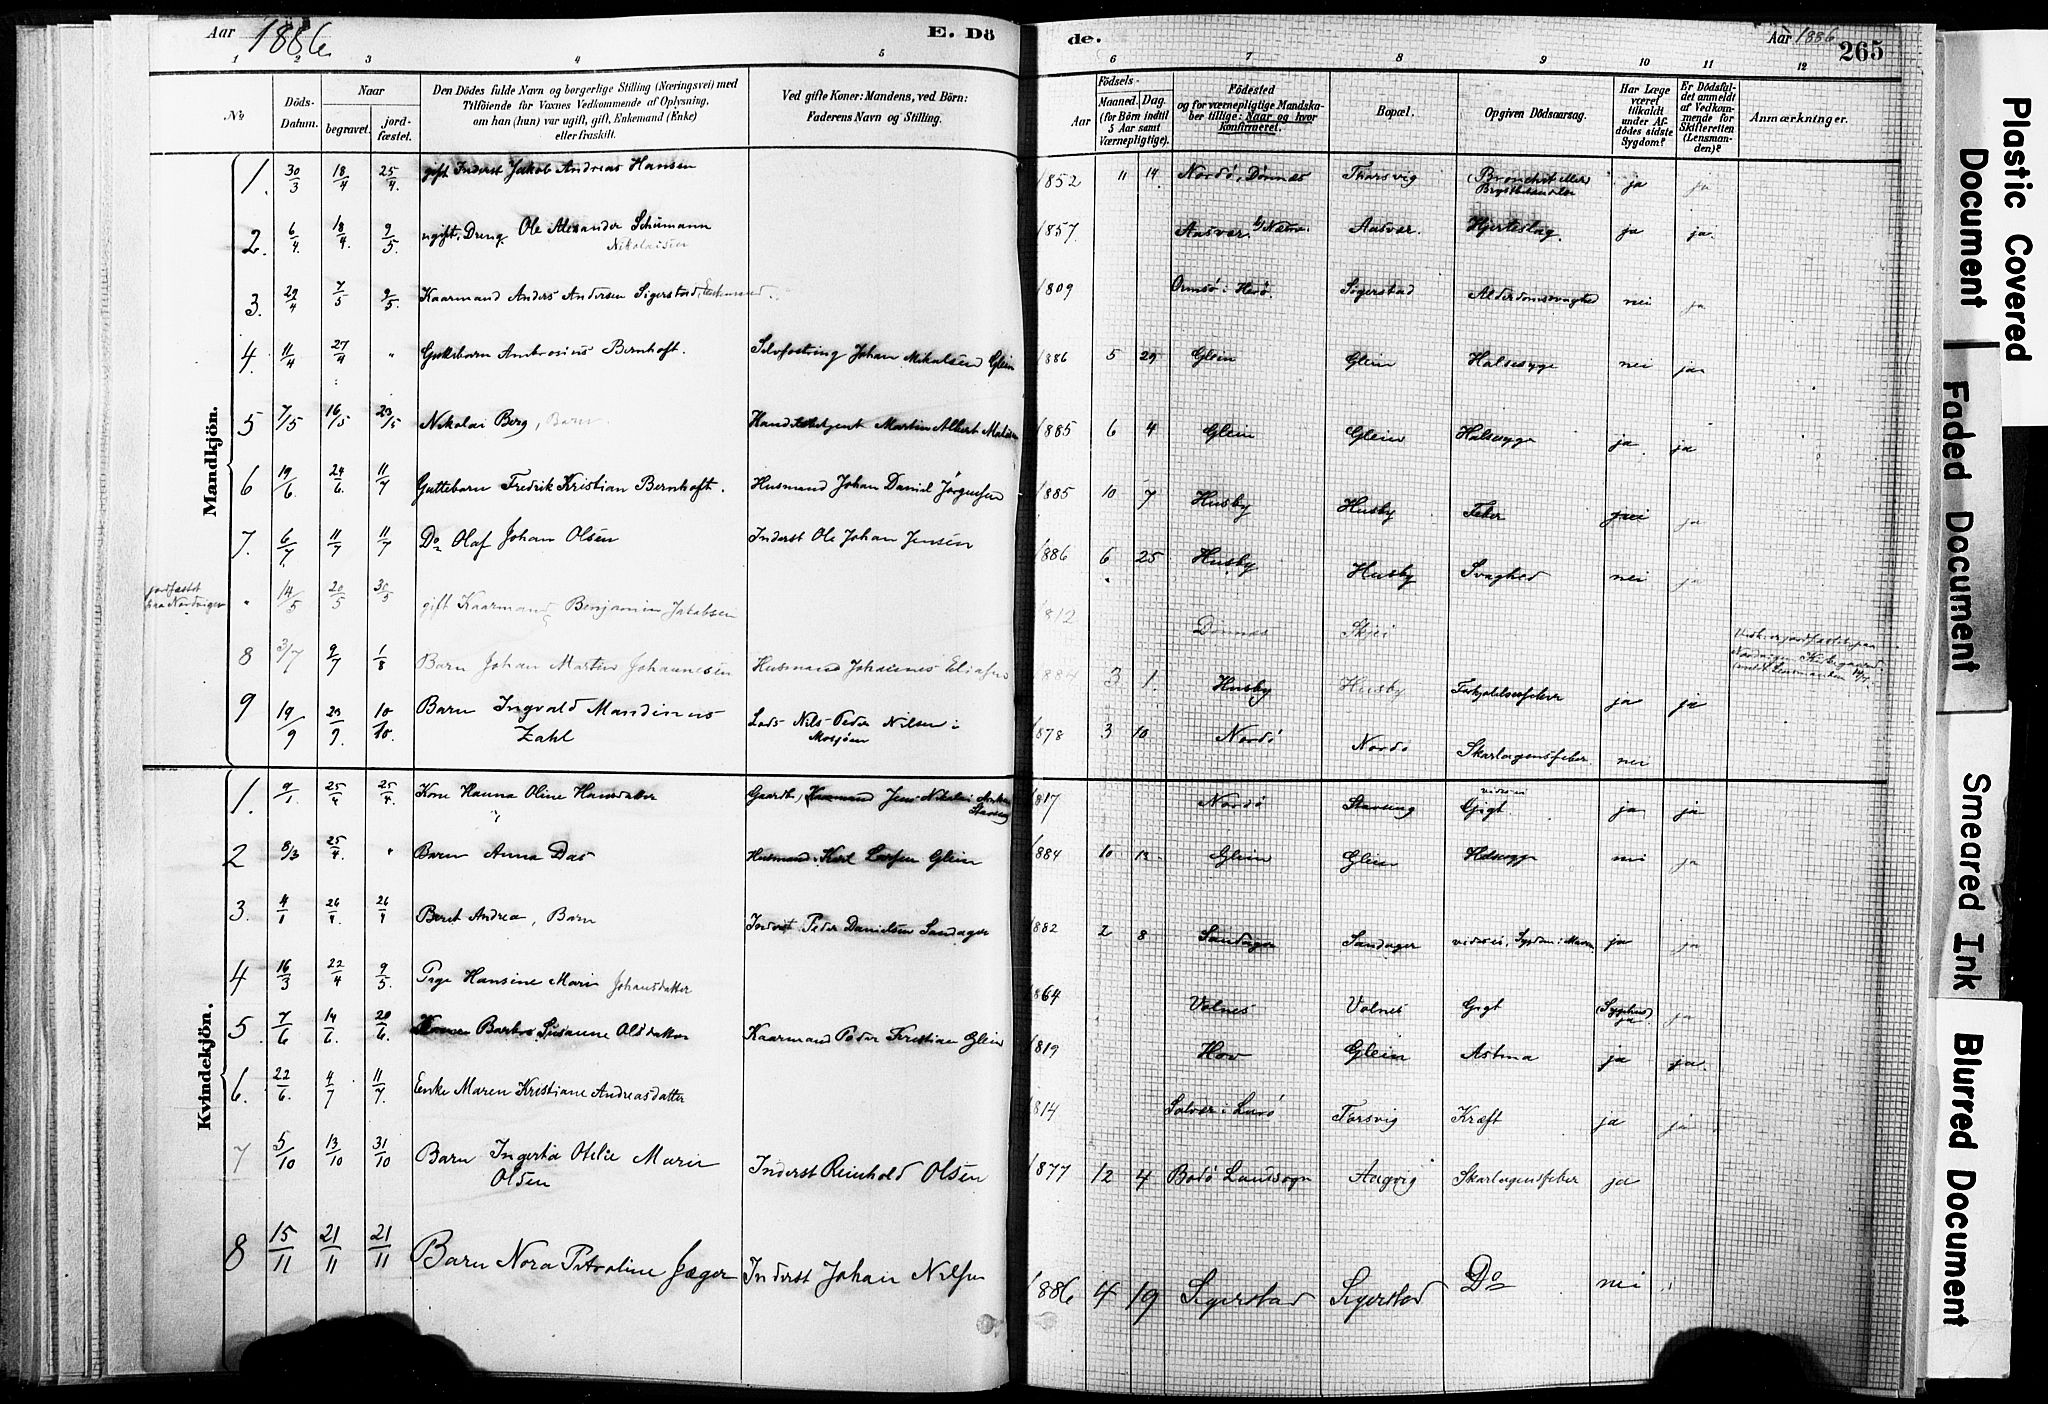 Aar 1886 E. Dö
de. Aar 1886 265
1 2 3 4 5 6 7 8 9 10 11 12
No
Döds-Datum.
Naar
begravet.
jord-fæstet.
Den Dödes fulde Navn og borgerlige Stilling (Næringsvei) med
Tilföiende for Voxnes Vedkommende af Oplysning,
om han (hun) var ugift, gift, Enkemand (Enke)
eller fraskilt.
Ved gifte Koner: Mandens, ved Börn:
Faderens Navn og Stilling.
Födsels-
Aar
Maaned. Dag.
(for Börn indtil
5 Aar samt
Værnepligtige).
Födested
og for værnepligtige Mandska-
ber tillige: Naar og hvor
konfirmeret.
Bopæl.
Opgiven Dödsaarsag.
Har Læge
været
tilkaldt
under Af-
dödes sidste
Sygdom?
Er Dödsfal-
det anmeldt
af Vedkom-
mende for
Skifteretten
(Lensman-
den)?
Anmærkninger.
Mandkjön.
1. 30/3 18/4 25/4. gift Inderst Jakob Andreas Hansen 1852 11 14. Nordö, Dönnes Farsvig (Bronchit eller ja ja
2. 6/4. 18/4. 9/5. ugift, Dreng Ole Alexander Schumann 1857. Aasvær Aasvær Hjerteslag. ja ja.
Nikolaisen
3. 29/4 7/5 9/5. Kaarmand Anders Andersen Sigerstad, Enkemand. 1809 Ormsö i Herö. Sigerstad Alderdomssvaghed nei ja
4. 11/4 27/4 " Guttebarn Ambrosius Bernhoft. Selvfostring Johan Mikalsen Glein 1886 5 29 Glein Glein Halsesyge nei ja
5 7/5 16/5 23/5 Nikolai Berg, Barn. Martin Albert 1885 6 4 Glein Glein Halsesyge ja ja
6 19/6. 24/6. 11/7 Guttebarn Fredrik Kristian Bernhoft. Husmand Johan Daniel Jörgensen 1885 10 7 Husby Husby Feber ja
7. 6/7 11/7 11/7 Do Olaf Johan Olsen Inderst Ole Johan Jensen 1886 6 25 Husby Husby Svaghed nei ja
jordfæstet
fra Nordvigen " 14/5 20/5 30/5 gift Kaarmand Benjamin Jakobsen 1812 Dönnes Skjei
8 3/7 9/7 1/8 Barn Johan Martin Johannesen Husmand Johannes Eliasen 1884 3 1. Husby Husby Forkjölelsesfeber ja ja
9 19/9 29/9. 10/10. Barn Ingvald Mandinus Lods Nils Peder Nilsen i 1878 3 10 Nordö Nordö Skarlagensfeber nei
Zahl Mosjöen
Kvindekjön.
1. 9/1. 25/4 25/4. Kone Hanna Oline Hansdatter Gaardb. Kaarmand Jens Nikolai 1817 Nordö Stavseng Gigt. ja ja
2 8/3 25/4. " Barn Anna Das Husmand Karl Larsen Glein 1884 10 12 Glein Glein Halsesyge nei ja
3. 4/1 26/4 26/4 Beret Andrea, Barn Inderst Peder Danielsen Sandager 1882 2 8 Sandager Sandager ja ja
4 16/3 22/4 9/5. Pige Hansine Marie Johansdatter 1864 Valnes Valnes Gigt (Sygehus) ja. ja
5. 7/6 14/6. 20/6. Barbro Susanne Olsdatter Kaarmand Peder Kristian Glein 1819 Hov Glein Astma ja ja.
6. 22/6. 4/7 11/7. Enke Maren Kristiane Andreasdatter 1814 Solvær i Lurö Farsvig Kræft ja ja
7 5/10 13/10 31/10 Barn Ingerta Otelie Marie Inderst Reinhold Olsen 1877 12 4 Bodö Landsogn Aagvig Skarlagensfeber ja
Olsen
8 15/11 21/11 21/11 Barn Nora Petroline Jæger Inderst Johan Nilsen 1886 4 19 Sigerstad Sigerstad Do nei
Plastic Covered
Document
Faded Document
Smeared Ink
Blurred Document